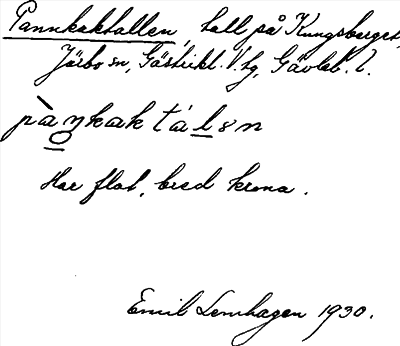 Pannkaktallen, tall på Kungsberget,
Järbo sn, Gästrikl. V. tg, Gävleb. l.
pànkaktálən
Har flat, bred krona.
Emil Lenhagen 1930.